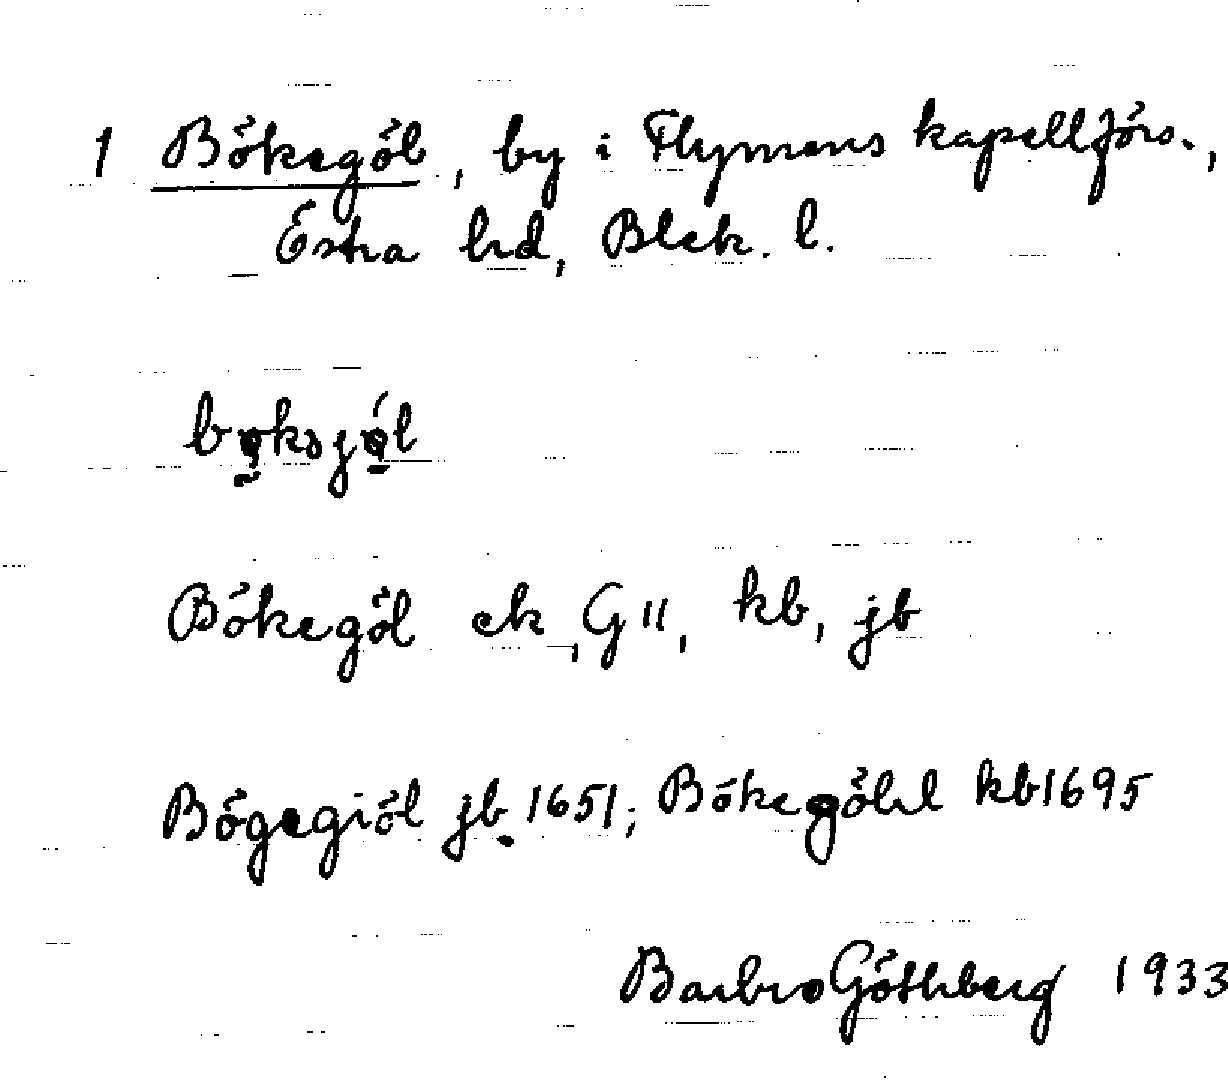 1 Bökegöl, by i Flymens kapellförs.,
Östra hd, Blek. l.
Bökegöl ek, G II, kb, jb
Bögegiöl jb 1651; Bökegöhl kb 1695
Barbro Göthberg 1933